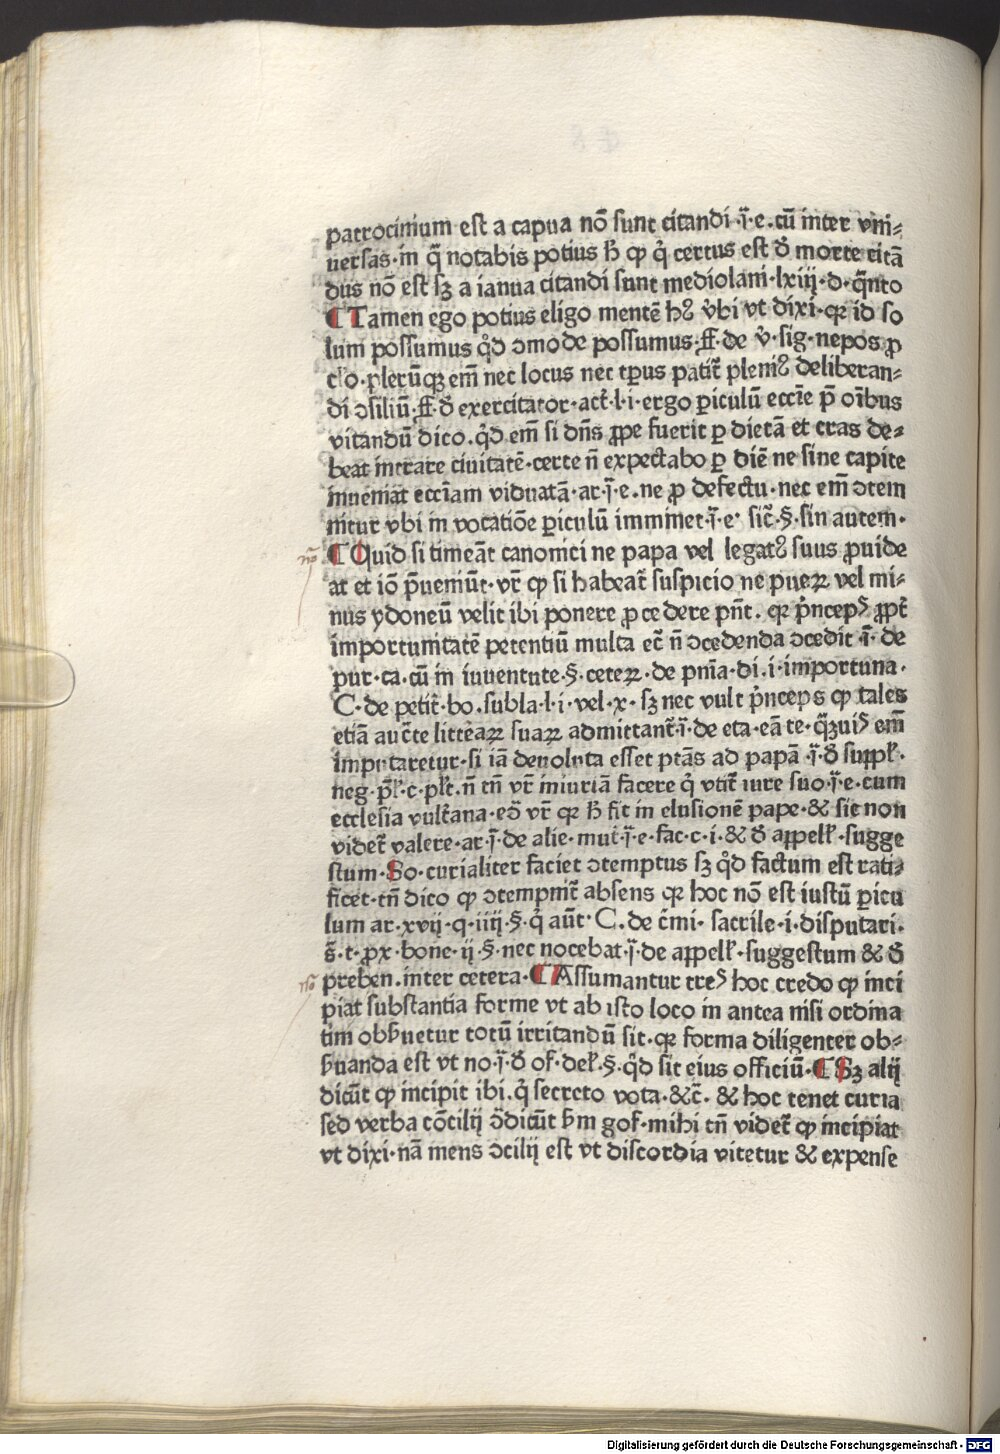 patrocinium est a capua nō sunt citandi ·ī·e·cū inter vni⸗
uersas·in q̄ notabis potius ħ ꝙ q̇ certus est ð morte citā
dus nō est sꝫ a ianua citandi sunt mediolani·lxiij·d·q̄nto
¶ Tamen ego potius eligo mentē hꝰ v̓bi vt dixi·qꝛ id so
lum possumus qd̓ ɔmode possumus·ff·de v̓·sig·nepos ꝓ
cl̓o·plerūqꝫ em̄ nec locus nec tp̄us patit̄ pleniꝰ deliberan⸗
di ɔsiliū·ff·ð exercitator·act̄·l·i·ergo ꝑiculū eccīe p̄ oībus
vitandū dico·qd̓ em̄ si dn̄s ꝓpe fuerit ꝑ dietā et cras de⸗
beat intrare ciuitatē·certe n̄ expectabo ꝑ diē ne sine capite
inueniāt eccīam viduatā·ar·ī·e·ne ꝓ defectu·nec em̄ ɔtem
nitur vbi in vocatiōe ꝑiculū imminet·ī·e· sic̄·§·sin autem·
¶ Quid si timeāt canonici ne papa vel legatꝰ suus ꝓuide
at et iō p̄ueniūt·vr̄ ꝙ si habeāt suspicio ne pueꝝ vel mi⸗
nus ydoneū velit ibi ponere ꝓcedere pn̄t· qꝛ p̄nceps ꝓpt̄
importunitatē petentiū multa et̄ n̄ ɔcedenda ɔcedit ī· de
pur·ca·cū in iuuentute·§·ceteꝝ·de pn̄ia·di·i·importuna·
C·de petit̄·bo·subla·l·i·vel·x·sꝫ nec vult p̄nceps ꝙ tales
etiā auc̄te litteraꝝ suaꝝ admittant̄·ī·de eta·eā te·q̄ꝫuis em̄
imputaretur·si iā deuoluta esset ptās ad papā ·ī·ð suppl̓·
neg·p̄l̓·c·pl̓t·n̄ tn̄ vr̄ iniuriā facere q̇ vtit̄ iure suo·ī·e·cum
ecclesia vult̄ana·eō vr̄ qꝛ ħ fit in elusionē pape·& sic non
videt̄ valere·ar·ī·de alie·mut̄·ī·e·fac·c·i·& ð appell̓·sugge
stum·So·curialiter faciet ɔtemptus sꝫ qd̓ factum est rati⸗
ficet·tn̄ dico ꝙ ɔtempnit̄ absens qꝛ hoc nō est iustū ꝑicu
lum ar·xvij·q·iiij·§·q̇ aūt· C·de c̄mi· sacrile·i·disputari·
s̄·t·ꝓx·bone·ij·§·nec nocebat·ī·de appell̓·suggestum & ð
preben·inter cetera·¶ Assumantur tres hoc credo ꝙ inci
piat substantia forme vt ab isto loco in antea nisi ordina
tim obẜuetur totū irritandū sit·qꝛ forma diligenter ob⸗
ẜuanda est vt no·ī·ð of̓·del̓·§·qd̓ sit eius officiū·¶ Sꝫ alij
dicūt ꝙ incipit ibi·q̇ secreto vota·&c̄· & hoc tenet curia
sed verba cōcilij ɔ̄dicūt ẜm gof̓·mihi tn̄ videt̄ ꝙ incipiat
vt dixi·nā mens ɔcilij est vt discordia vitetur & expense
Digitalisierung gefördert durch die Deutsche Forschungsgemeinschaft - DFG